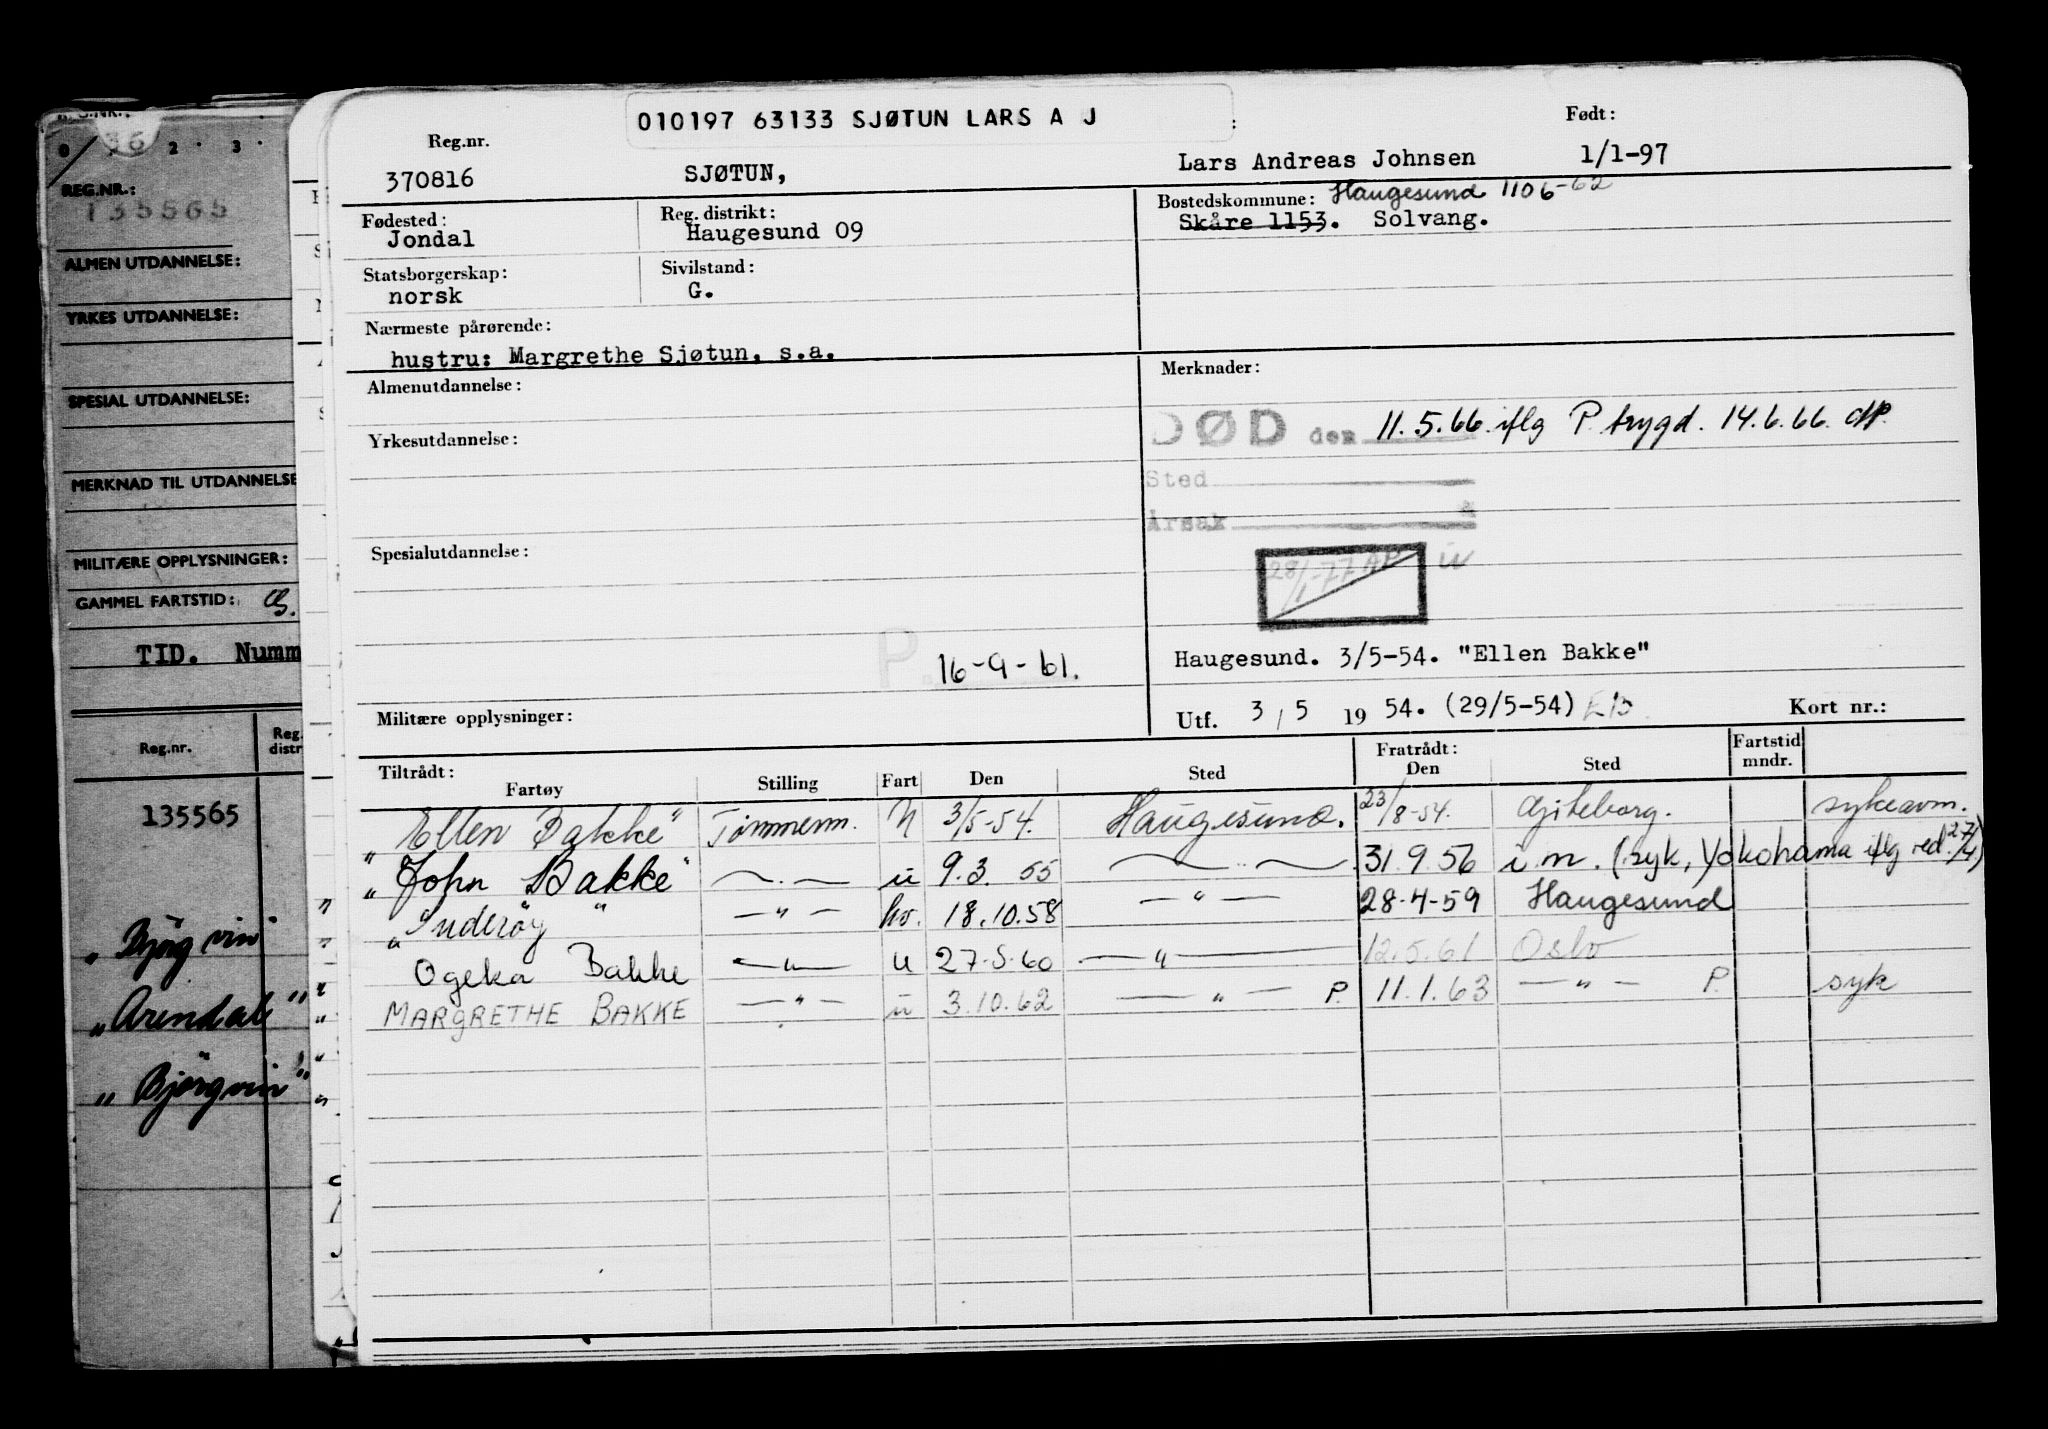 36
0 1 2 · 3 ·
REG.NR.:
135565
ALMEN UTDANNELSE:
YRKES UTDANNELSE:
SPESIAL UTDANNELSE:
MERKNAD TIL UTDANNELSE
MILITÆRE OPPLYSNINGER:
GAMMEL FARTSTID:
TID. Numm
Reg.nr. Reg. distr
135565
"Bjørgvin"
"Arendal"
"Bjørgvin"
010197 63133 SJØTUN LARS A J
Reg.nr. Født:
370816 SJØTUN, Lars Andreas Johnsen 1/1-97
Fødested: Reg. distrikt: Bostedskommune: Haugesund 1106-62
Jondal Haugesund 09 Skåre 1153. Solvang.
Statsborgerskap: Sivilstand:
norsk G.
Nærmeste pårørende:
hustru: Margrethe Sjøtun, s.a.
Almenutdannelse: Merknader:
DØD den 11.5.66. iflg P. trygd. 14.6.66.
Yrkesutdannelse:
Sted
Årsak
Spesialutdannelse:
28/1-77
P. 16-9-61.
Haugesund. 3/5-54. "Ellen Bakke"
Militære opplysninger: Utf. 3/5 1954. (29/5-54) Kort nr.:
Tiltrådt: Fratrådt: Fartstid mndr.
Fartøy Stilling Fart Den Sted Den Sted
"Ellen Bakke" Tømmerm. N 3/5-54. Haugesund. 23/8-54. Gøteborg. sykeavm.
"John Bakke" —„— u 9.3.55 —„— 31.9.56 i.m. (syk, Yokohama iflg red. 27/4)
"Inderøy" —„— hv. 18.10.58 —„— 28-4-59 Haugesund
Ogeka Bakke —„— u 27-5-60 —„— 12.5.61 Oslo
MARGRETHE BAKKE —„— u 3.10.62 —„— P. 11.1.63 —„— P. syk